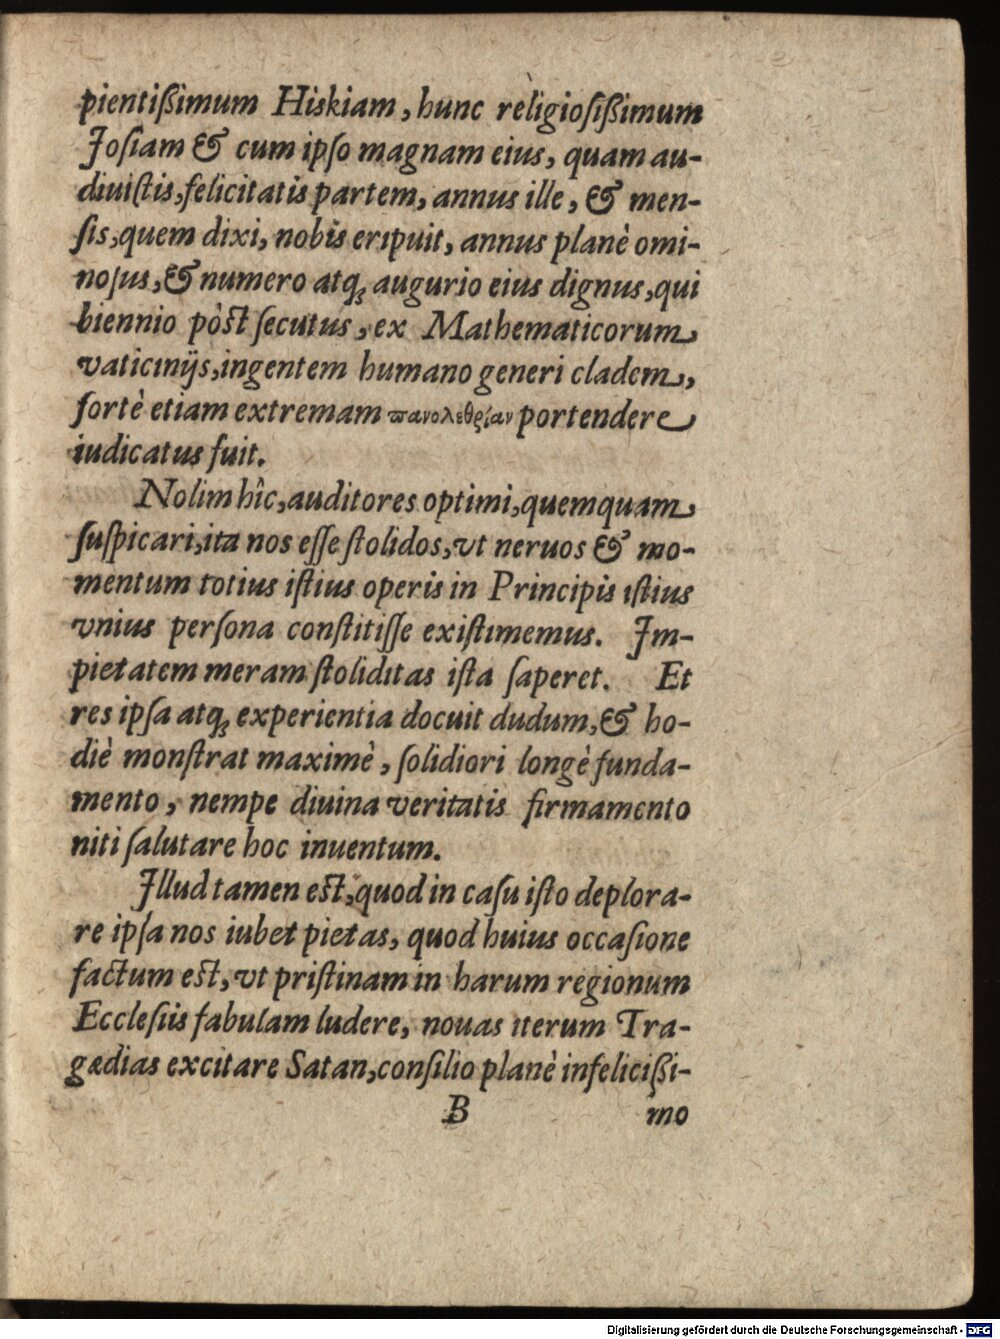 pientißimum Hiskiam, hunc religiosißimum
Josiam & cum ipso magnam eius, quam au-
diuistis, felicitatis partem, annus ille, & men-
sis, quem dixi, nobis eripuit, annus planè omi-
nosus, & numero atq; augurio eius dignus, qui
biennio pòst secutus, ex Mathematicorum
vaticinijs, ingentem humano generi cladem,
fortè etiam extremam πανολεθρίαν portendere
iudicatus fuit.
Nolim hîc, auditores optimi, quemquam
suspicari, ita nos esse stolidos, vt neruos & mo-
mentum totius istius operis in Principis istius
vnius persona constitisse existimemus. Im-
pietatem meram stoliditas ista saperet. Et
res ipsa atq; experientia docuit dudum, & ho-
diè monstrat maximè, solidiori longè funda-
mento, nempe diuina veritatis firmamento
niti salutare hoc inuentum.
Illud tamen est, quod in casu isto deplora-
re ipsa nos iubet pietas, quod huius occasione
factum est, vt pristinam in harum regionum
Ecclesiis fabulam ludere, nouas iterum Tra-
gædias excitare Satan, consilio planè infelicißi-
B mo
Digitalisierung gefördert durch die Deutsche Forschungsgemeinschaft - DFG